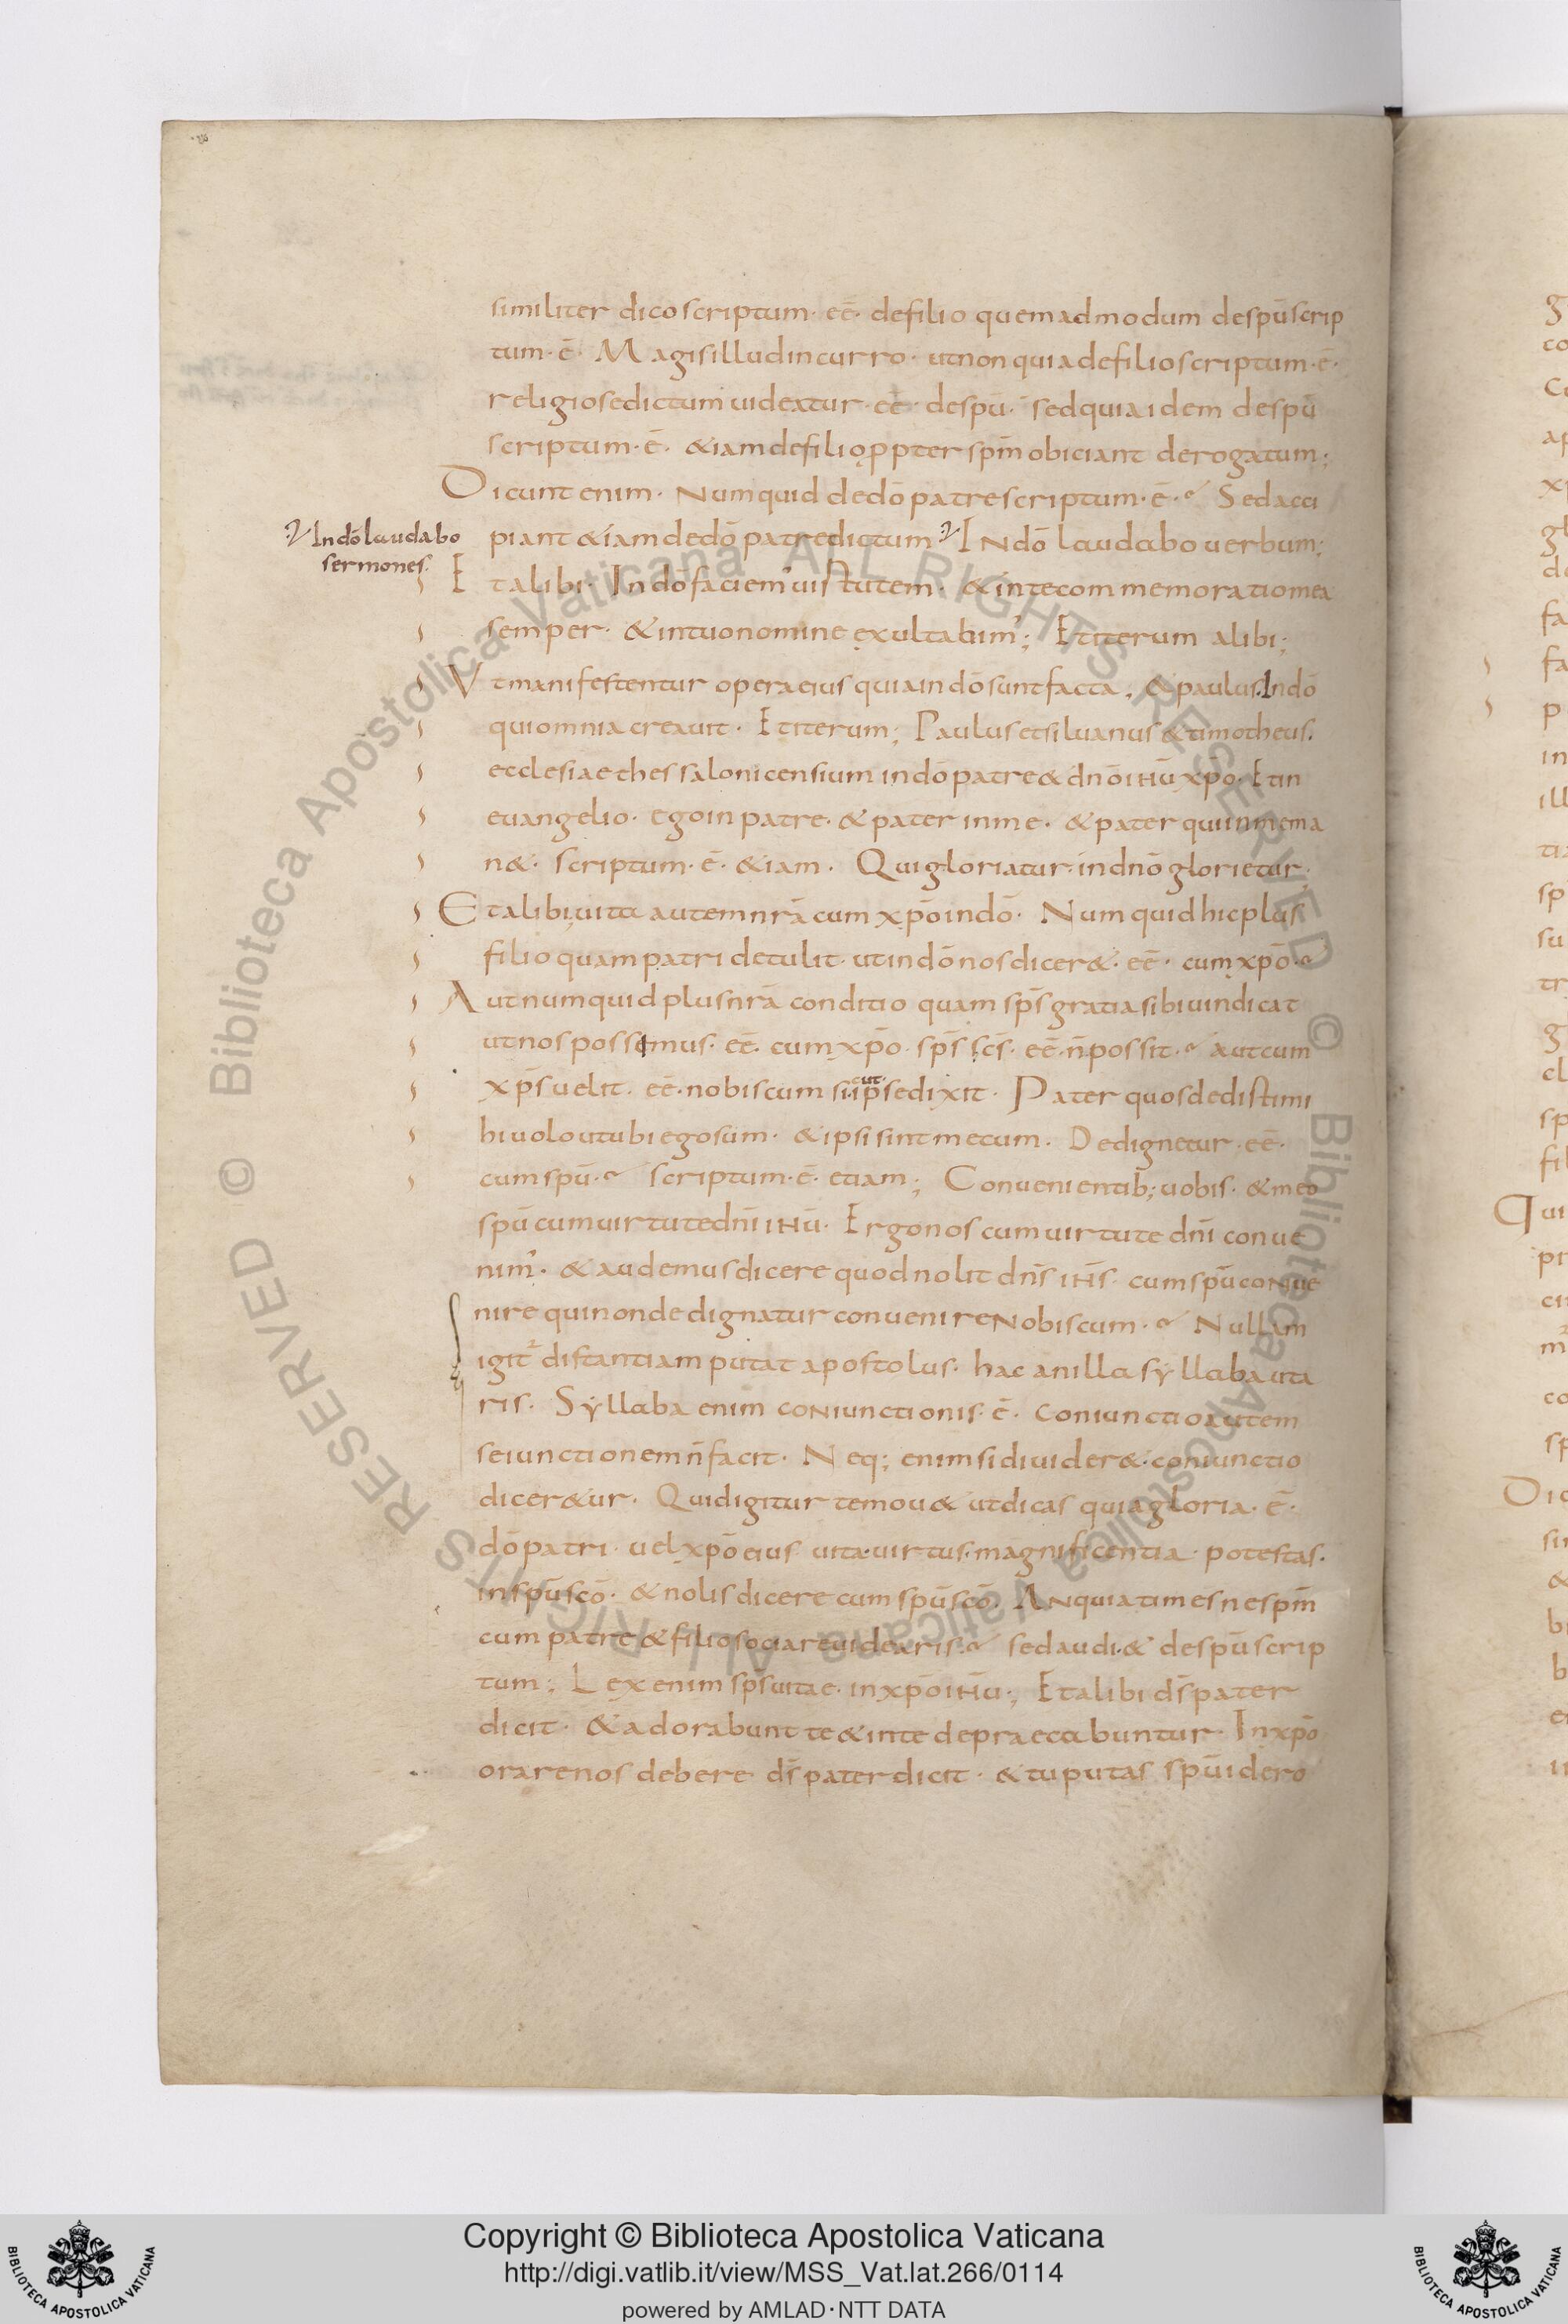 similiter dico scriptum· eē· de filio quemadmodum de spū scrip
tum· ē· Magis illud incurro· ut non quia de filio scriptum· ē·
religiose dictum uideatur· eē· de spū· sed quia idem de spū
scriptum· ē· &iam de filio ppter spm̄ obiciant derogatum;
Dicunt enim· Numquid de dō patre scriptum· ē· Sed acci
Indō laudabo
sermones·
piant &iam de dō patre dictum In dō laudabo uerbum;
Et alibi· In dō faciem' uirtutem· & in te commemoratio mea
semper· & in tuo nomine exultabim'; Et iterum alibi;
Vt manifestentur opera eius quia in dō sunt facta; & paulus· In dō
qui omnia creauit· Et iterum; Paulus et siluanus & timotheus·
ecclesiae thessalonicensium in dō patre & dnō ihū xpō· Et in
euangelio· ego in patre· & pater in me· & pater qui in me ma
n&· scriptum· ē· &iam· Qui gloriatur· in dnō glorietur·
Et alibi; uita autem nrā cum xpō in dō· Numquid hic plus
filio quam patri detulit· ut in dō nos dicer&· eē· cum xpō·
Aut numquid plus nrā conditio quam sps̄ gratia sibi uindicat
ut nos possimus· eē· cum xpō· sps̄ scs̄· eē· n̄ possit· aut cum
xps̄ uelit· eē· nobiscum sicut ipse dixit· Pater quos dedisti mi
hi uolo ut ubi ego sum· & ipsi sint mecum· Dedignetur· eē·
cum spū· scriptum· ē· etiam; Conuenientib; uobis· & meo
spū cum uirtute dnī ihū· Ergo nos cum uirtute dnī conue
nim'· & audemus dicere quod nolit dns̄ ihs̄· cum spū conue
nire qui non dedignatur conuenire nobiscum· Nullam
igit² distantiam putat apostolus· hac an illa syllaba uta
ris· Syllaba enim coniunctionis· ē· coniunctio autem
seiunctionem n̄ facit· Neq; enim si diuider&· coniunctio
dicer&ur· Quid igitur te mou& ut dicas quia gloria· ē·
dō patri· uel xpō eius uita· uirtus· magnificentia· potestas·
in spū scō· & nolis dicere cum spū scō· An quia times ne spm̄
cum patre & filio sociare uidearis· sed audi· & de spū scrip
tum; Lex enim sps̄ uitae· in xpō ihū·; Et alibi ds̄ pater
dicit· & adorabunt te & in te depraecabuntur· In xpō
orare nos debere ds̄ pater dicit· & tu putas spūi dero
© Biblioteca Apostolica Vaticana ALL RIGHTS RESERVED © Biblioteca Apostolica Vaticana ALL RIGHTS RESERVED
Copyright © Biblioteca Apostolica Vaticana
http://digi.vatlib.it/view/MSS_Vat.lat.266/0114
powered by AMLAD·NTT DATA
BIBLIOTECA APOSTOLICA VATICANA
BIBLIOTECA APOSTOLICA VATICANA